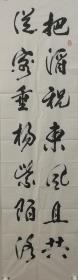 把酒祝東風且共
從容垂楊紫陌洛